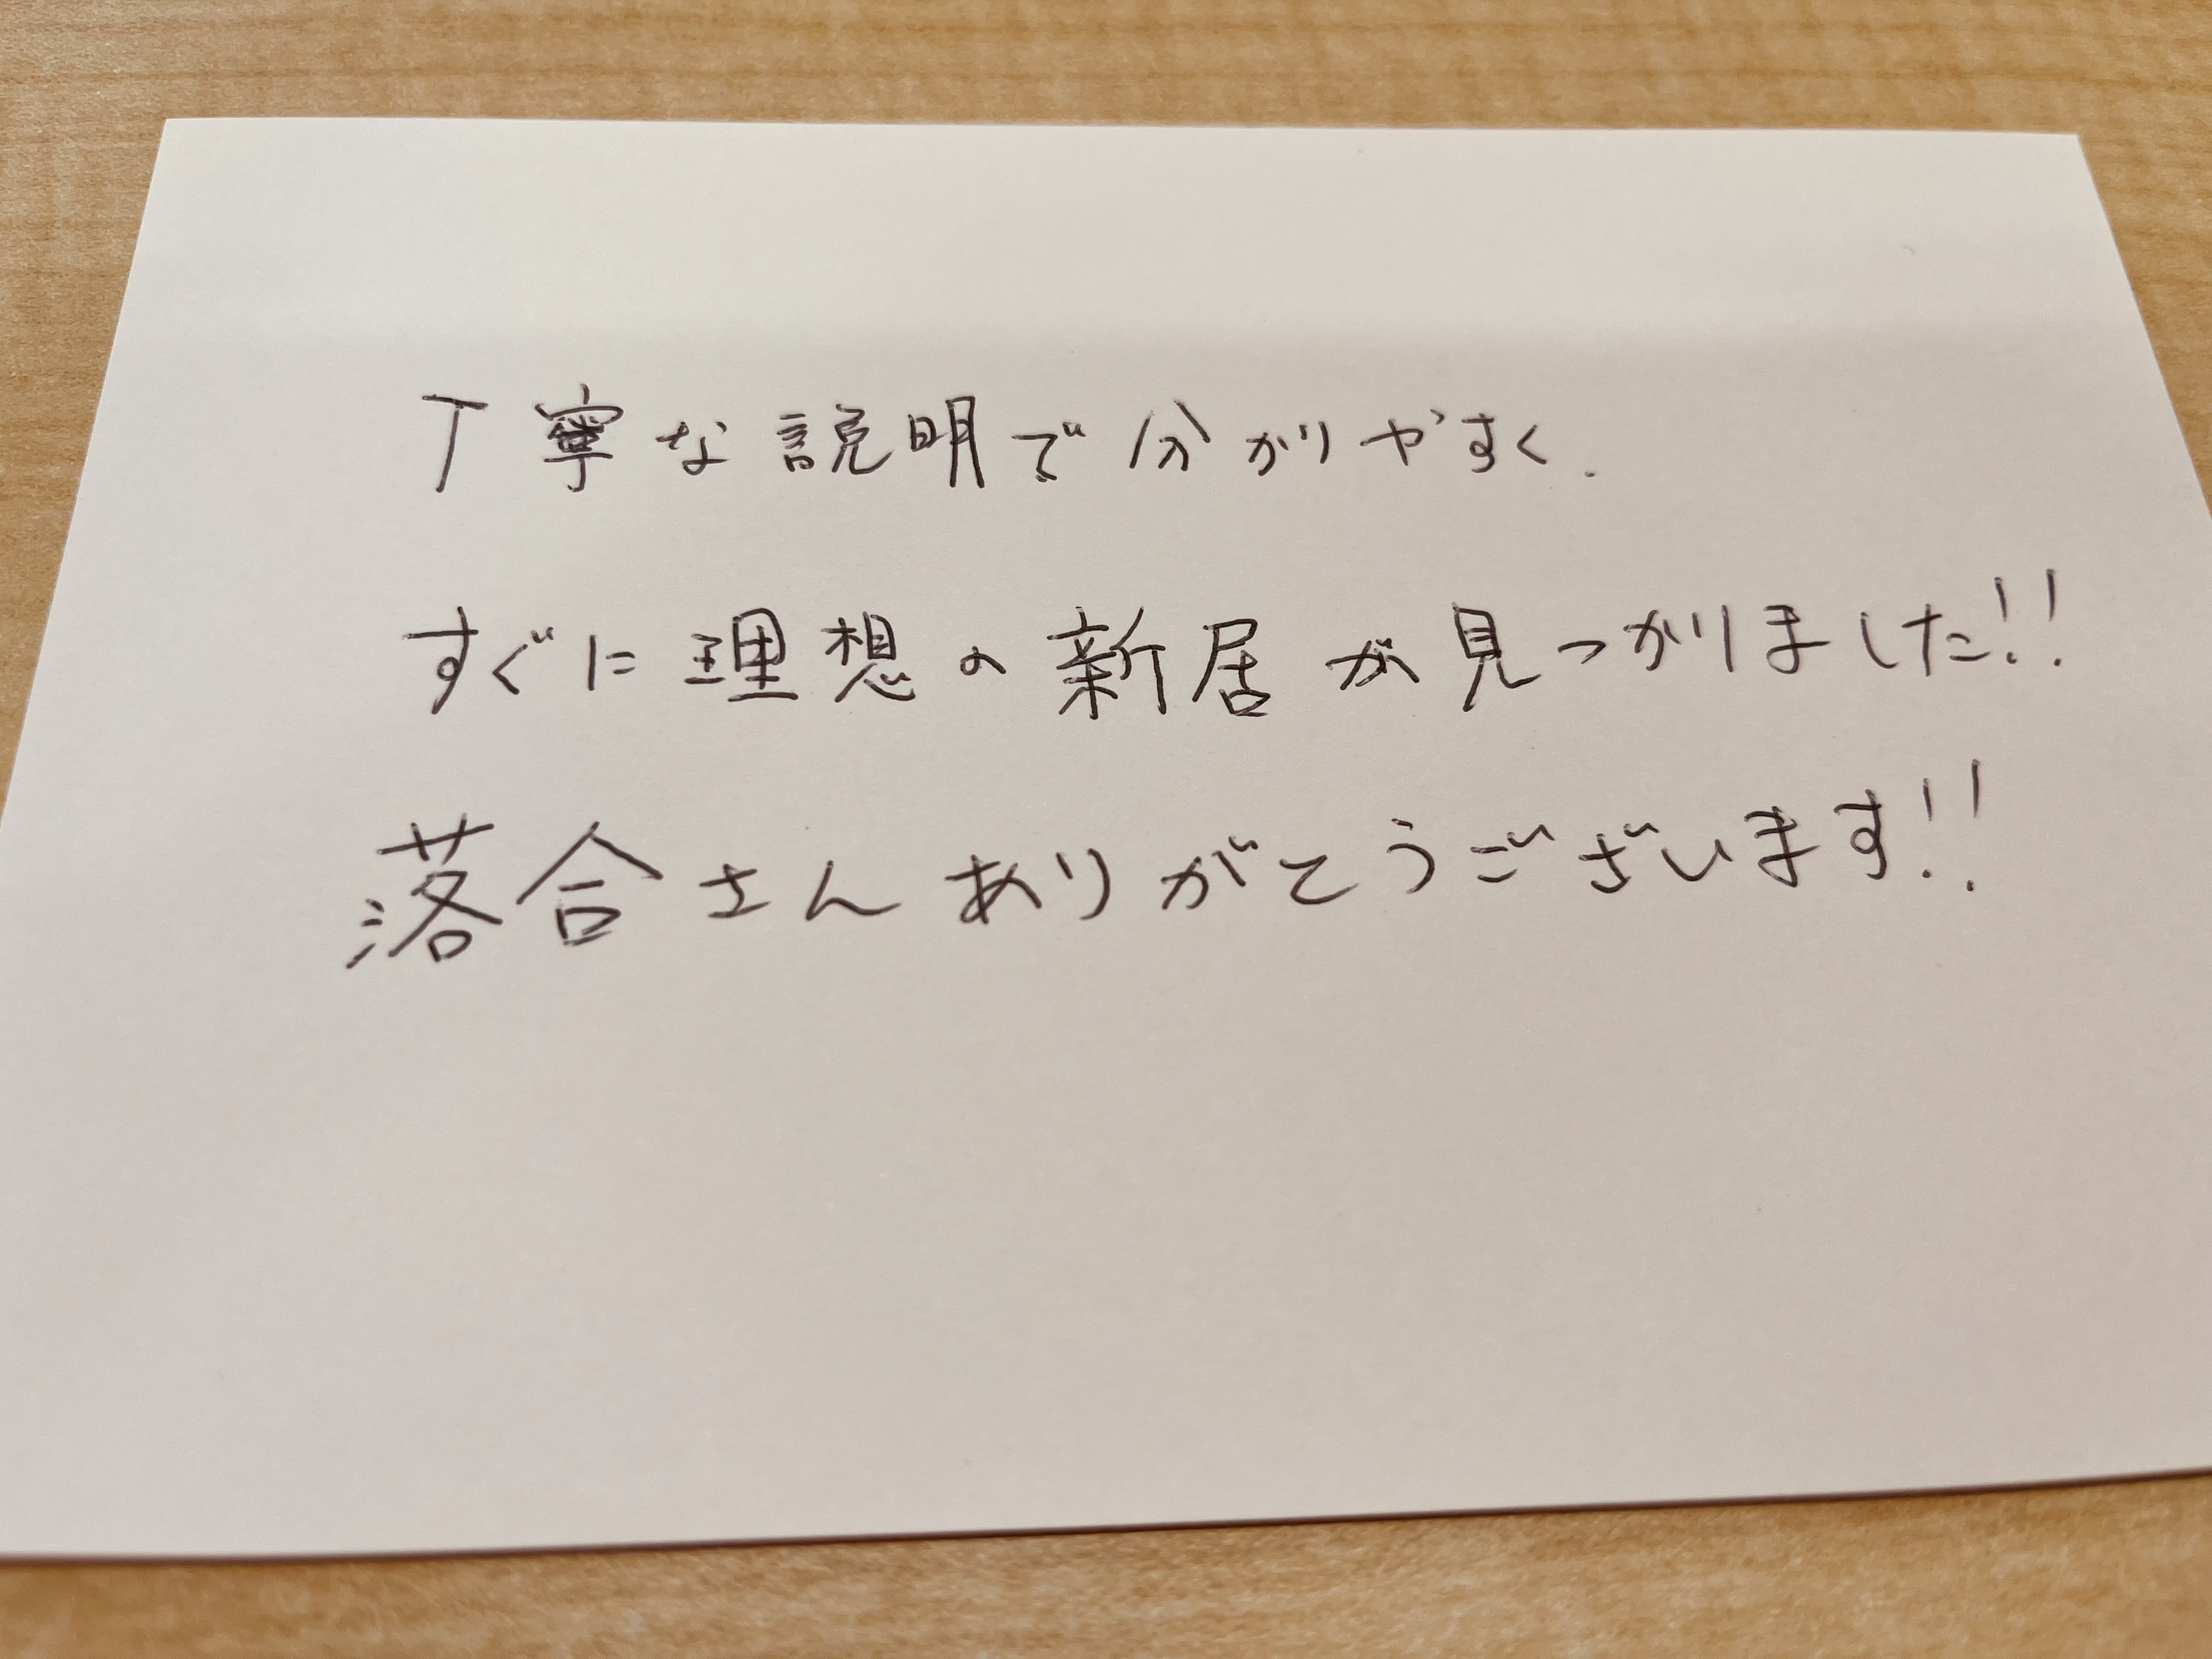 丁寧な説明で分かりやすく.
すぐに理想の新居が見つかりました!!
落合さんありがとうございます!!